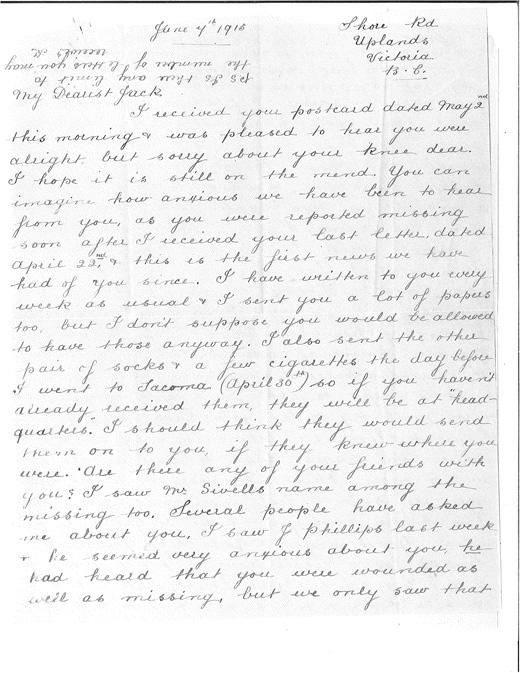 June 7th 1915
Shore Rd
Uplands
Victoria
B.C.
P.S. Is there any limit to
the number of letters you may
receive? K.
My Dearest Jack
I received your postcard dated May 2nd
this morning & was pleased to hear you were
alright, but sorry about your knee dear.
I hope it is still on the mend. You can
imagine how anxious we have been to hear
from you, as you were reported missing
soon after I received your last letter, dated
April 22nd, & this is the first news we have
had of you since. I have written to you every
week as usual & I sent you a lot of papers
too, but I don't suppose you would be allowed
to have those anyway. I also sent the other
pair of socks & a few cigarettes the day before
I went to Tacoma (April 30th) so if you haven't
already received them, they will be at "head-
quarters." I should think they would send
them on to you, if they knew where you
were. Are there any of your friends with
you? I saw Mr Sivells name among the
missing too. Several people have asked
me about you, I saw J Phillips last week
& he seemed very anxious about you, he
had heard that you were wounded as
well as missing, but we only saw that